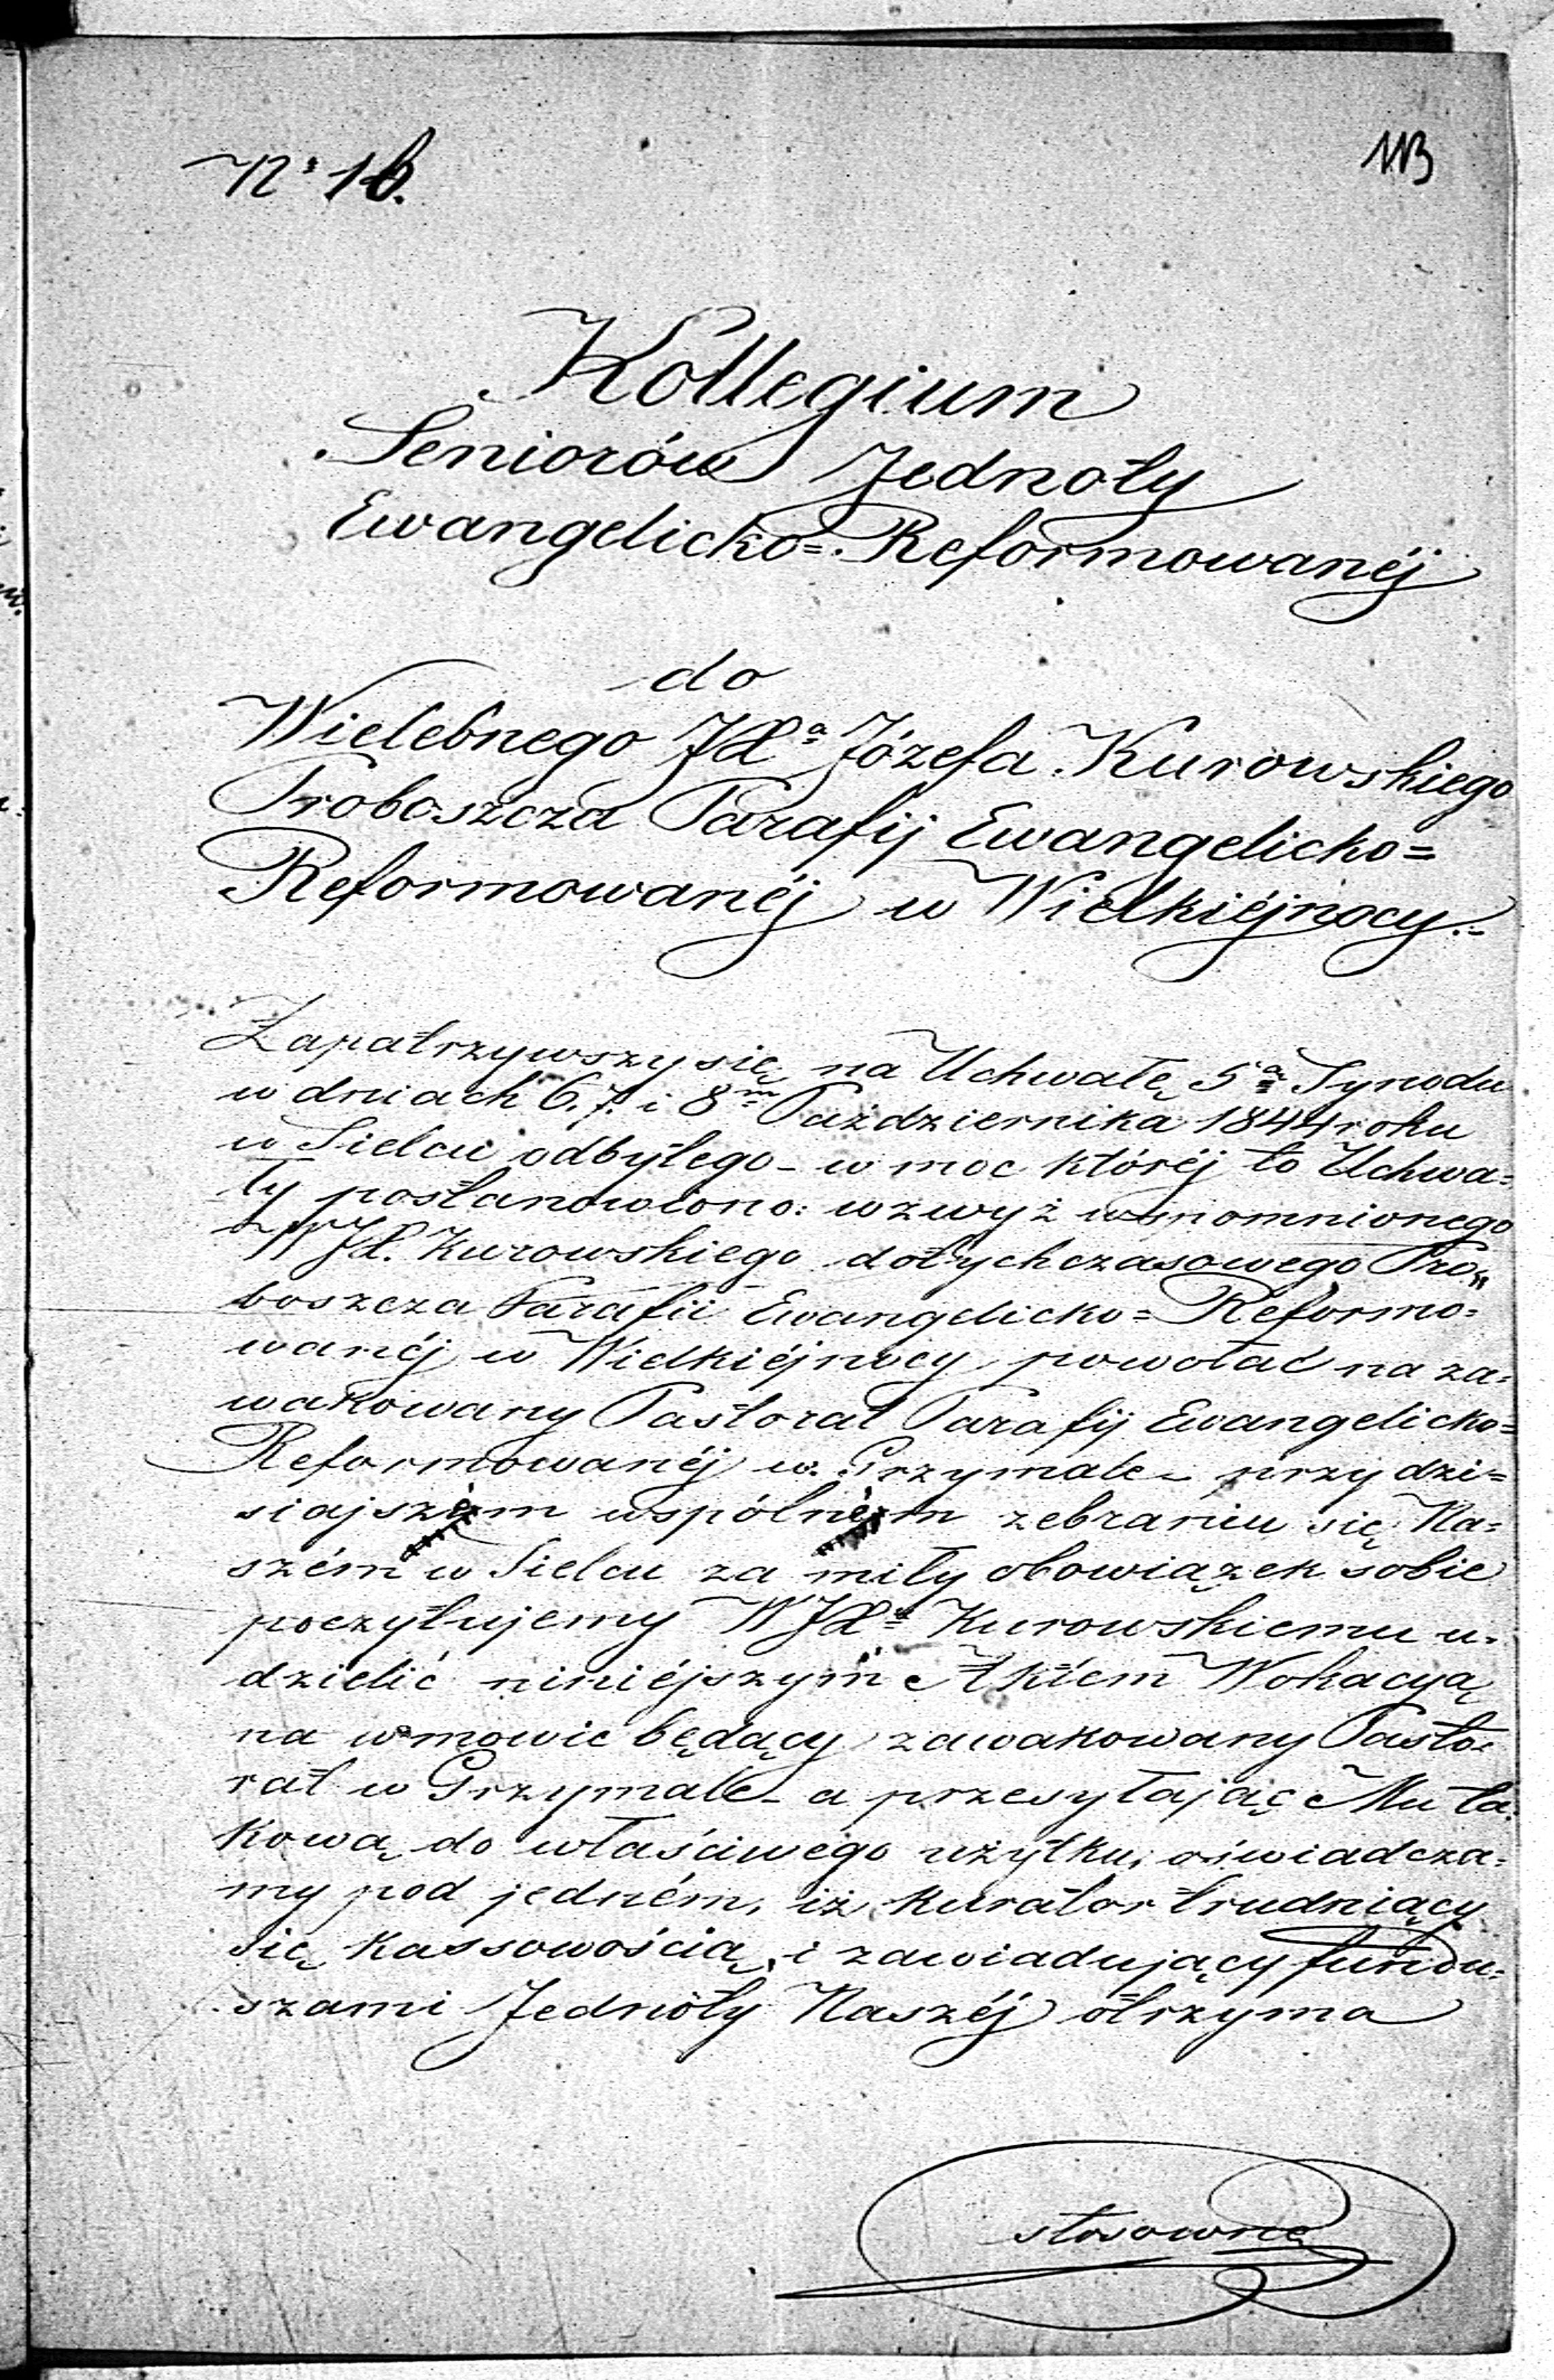 N: 16.
113
Kollegium
Seniorów Jednoty
Ewangelicko=Reformowanéj
do
Wielebnego JX:a Józefa Kurowskiego
Proboszcza Parafij Ewangelicko=
Reformowanéj w Wielkiéjnocy.
Zapatrzywszy się na Uchwałę 5a Synodu
w dniach 6. 7. i 8m Października 1844 roku
w Sielcu odbytego - w moc któréj to Uchwa=
ły postanowiono: wzwyż wspomnionego
WJX. Kurowskiego dotychczasowego Pro„
boszcza Parafii Ewangelicko=Reformo=
wanéj w Wielkiéjnocy powołać na za=
wakowany Pastorat Parafij Ewangelicko=
Reformowanéj w Grzymale - przy dzi=
siajszém wspólném zebraniu się Na=
szém w Sielcu za miły obowiązek sobie
poczytujemy WJX: Kurowskiemu u=
dzielić niniéjszym Aktem Wokacyą
na w mowie będący zawakowany Pasto=
rat w Grzymale - a przesyłając Mu ta=
kową do właściwego użytku, oświadcza=
my pod jedném, iż Kurator trudniący
się Kassowością, i zawiadujący fundu=
szami Jednoty Naszéj otrzyma
stosowne